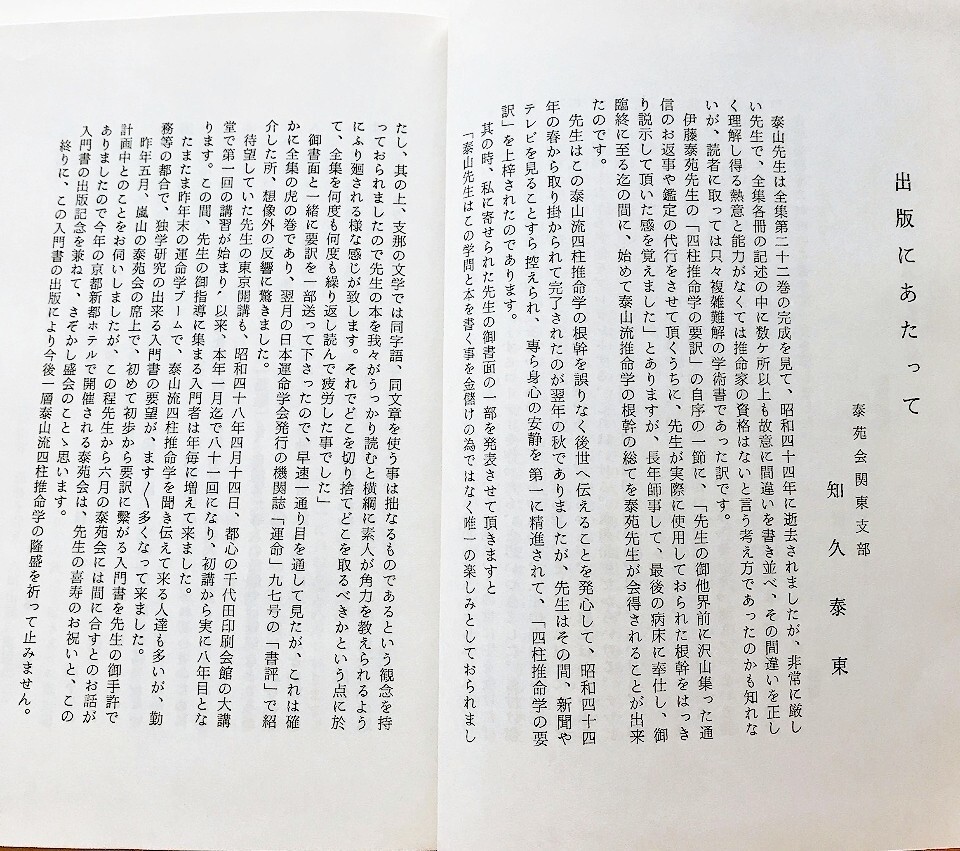 出版にあたって
泰苑会関東支部
知久泰東
泰山先生は全集第二十二巻の完成を見て、昭和四十四年に逝去されましたが、非常に厳し
い先生で、全集各冊の記述の中に数ケ所以上も故意に間違いを書き並べ、その間違いを正し
く理解し得る熱意と能力がなくては推命家の資格はないと言う考え方であったのかも知れな
いが、読者に取っては只々複雑難解の学術書であった訳です。
伊藤泰苑先生の「四柱推命学の要訳」の自序の一節に、「先生の御他界前に沢山集った通
信のお返事や鑑定の代行をさせて頂くうちに、先生が実際に使用しておられた根幹をはっき
り説示して頂いた感を覚えました」とありますが、長年師事して、最後の病床に奉仕し、御
臨終に至る迄の間に、始めて泰山流推命学の根幹の総てを泰苑先生が会得されることが出来
たのです。
先生はこの泰山流四柱推命学の根幹を誤りなく後世へ伝えることを発心して、昭和四十四
年の春から取り掛かられて完了されたのが翌年の秋でありましたが、先生はその間、新聞や
テレビを見ることすら控えられ、専ら身心の安静を第一に精進されて、「四柱推命学の要
訳」を上梓されたのであります。
其の時、私に寄せられた先生の御書面の一部を発表させて頂きますと
「泰山先生はこの学問と本を書く事を金儲けの為ではなく唯一の楽しみとしておられまし
たし、其の上、支那の文学では同字語、同文章を使う事は拙なるものであるという観念を持
っておられましたので先生の本を我々がうっかり読むと横綱に素人が角力を教えられるよう
にふり廻される様な感じが致します。それでどこを切り捨てどこを取るべきかという点に於
て、全集を何度も何度も繰り返し読んで疲労した事でした」
御書面と一緒に要訳を一部送って下さったので、早速一通り目を通して見たが、これは確
かに全集の虎の巻であり、翌月の日本運命学会発行の機関誌「運命」九七号の「書評」で紹
介した所、想像外の反響に驚きました。
待望していた先生の東京開講も、昭和四十八年四月十四日、都心の千代田印刷会館の大講
堂で第一回の講習が始まり、以来、本年一月迄で八十一回になり、初講から実に八年目とな
ります。この間、先生の御指導に集まる入門者は年毎に増えて来ました。
たまたま昨年末の運命学ブームで、泰山流四柱推命学を聞き伝えて来る人達も多いが、勤
務等の都合で、独学研究の出来る入門書の要望が、ます〳〵多くなって来ました。
昨年五月、嵐山の泰苑会の席上で、初めて初歩から要訳に繋がる入門書を先生の御手許で
計画中とのことをお伺いしましたが、この程先生から六月の泰苑会には間に合すとのお話が
ありましたので今年の京都新都ホテルで開催される泰苑会は、先生の喜寿のお祝いと、この
入門書の出版記念を兼ねて、さぞかし盛会のことゝ思います。
終りに、この入門書の出版により今後一層泰山流四柱推命学の隆盛を祈って止みません。